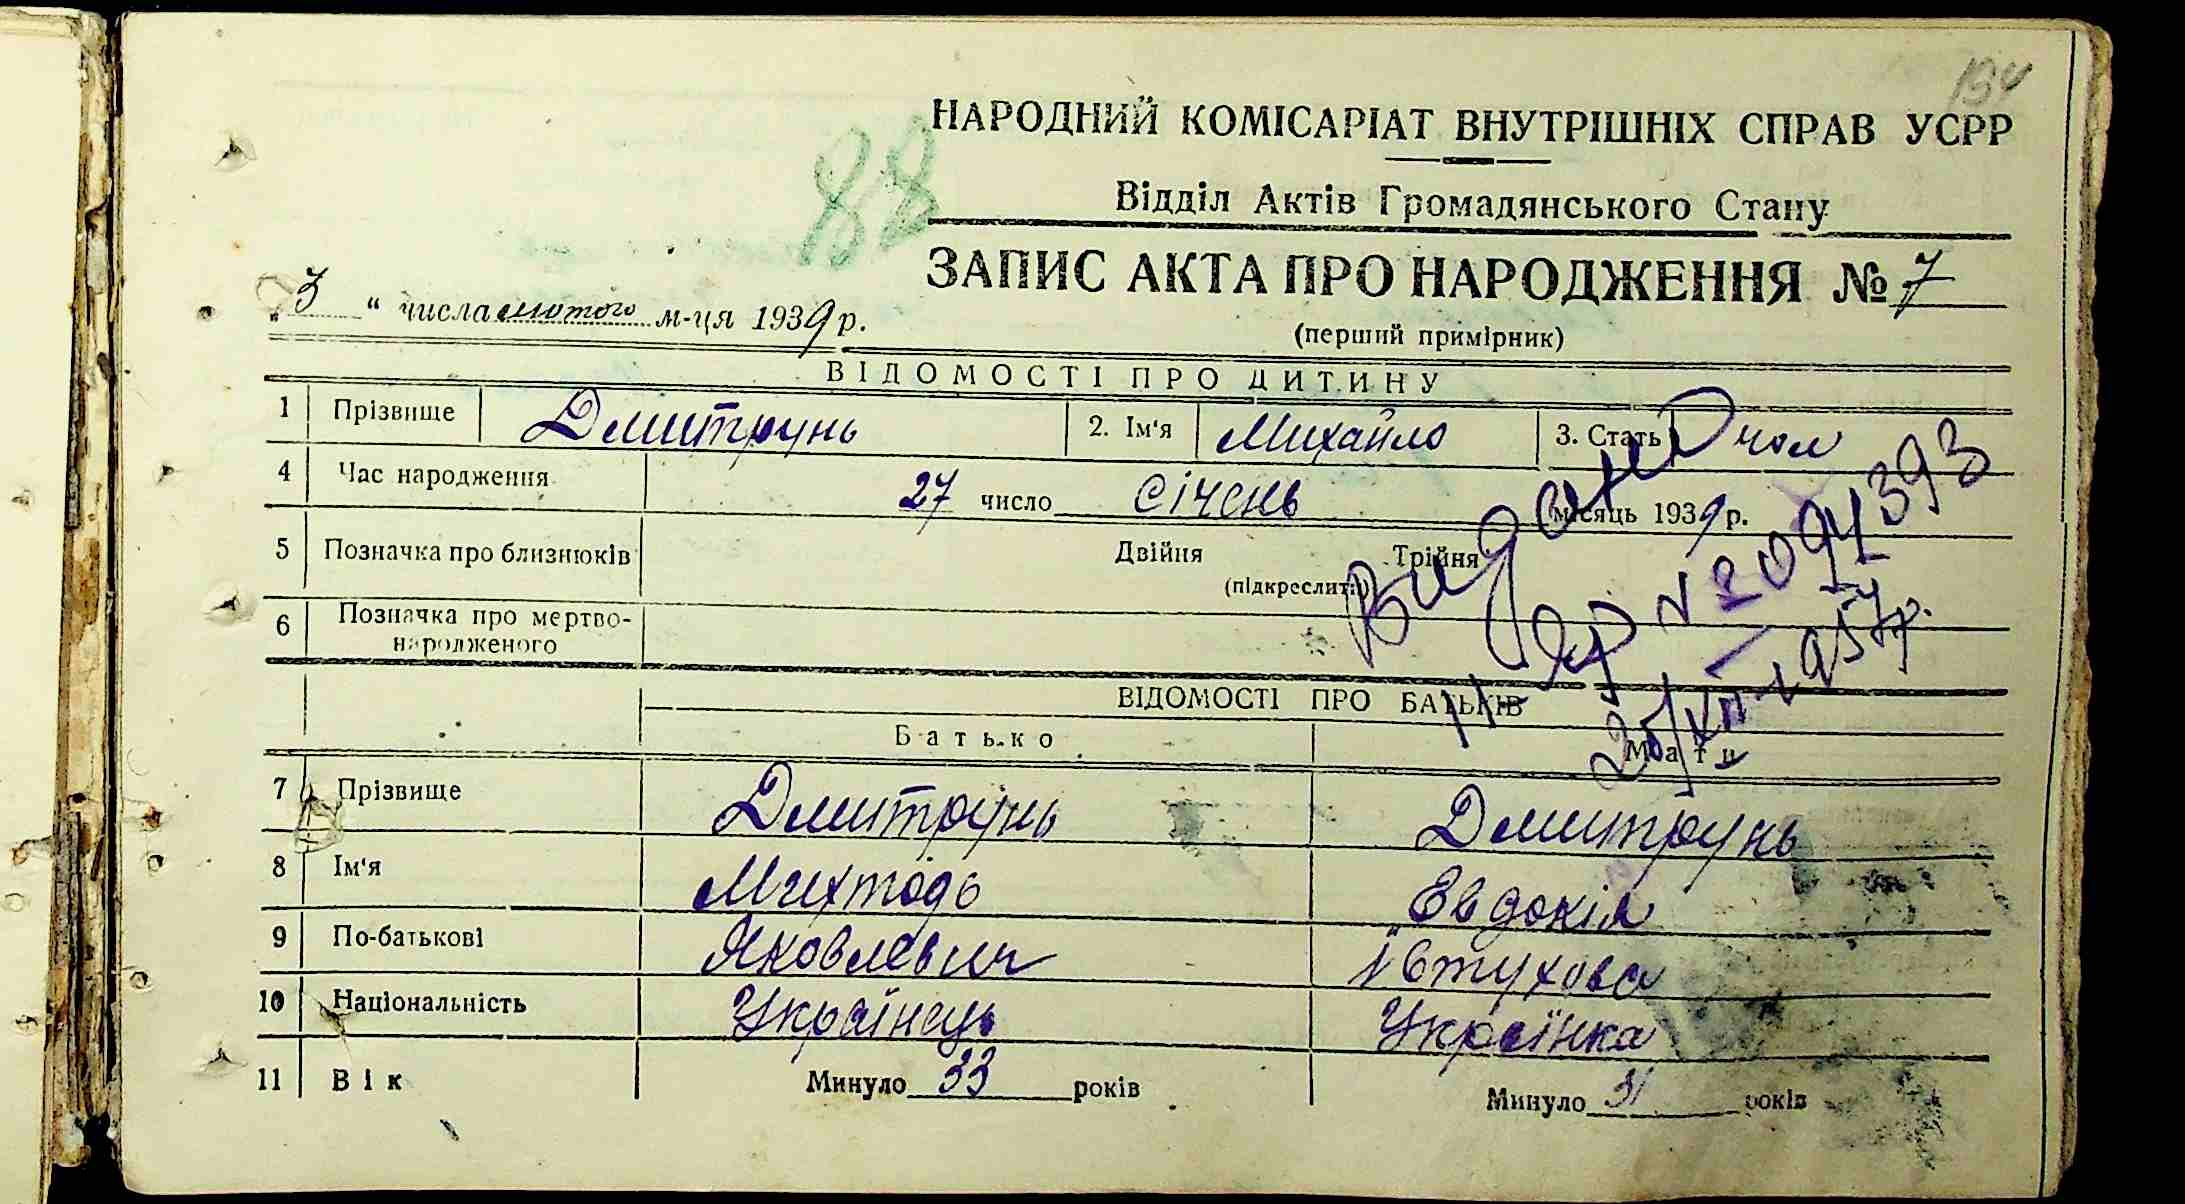 134
НАРОДНИЙ КОМІСАРІАТ ВНУТРІШНІХ СПРАВ УСРР
88
Відділ Актів Громадянського Стану
ЗАПИС АКТА ПРО НАРОДЖЕННЯ № 7
„3“ числа лютого м-ця 1939 р.
(перший примірник)
ВІДОМОСТІ ПРО ДИТИНУ
1 Прізвище Дмитрунь 2. Ім'я Михайло 3. Стать чол
4 Час народження 27 число січень місяць 1939 р.
5 Позначка про близнюків Двійня Трійня
(підкреслити)
6 Позначка про мертво-
народженого
Видано
№ 094393
1957р.
ВІДОМОСТІ ПРО БАТЬКІВ
Батько Мати
7 Прізвище Дмитрунь Дмитрунь
8 Ім'я Михтодь Евдокія
9 По-батькові Яковлевич
10 Національність Українець Українка
11 Вік Минуло 33 років Минуло 31 років